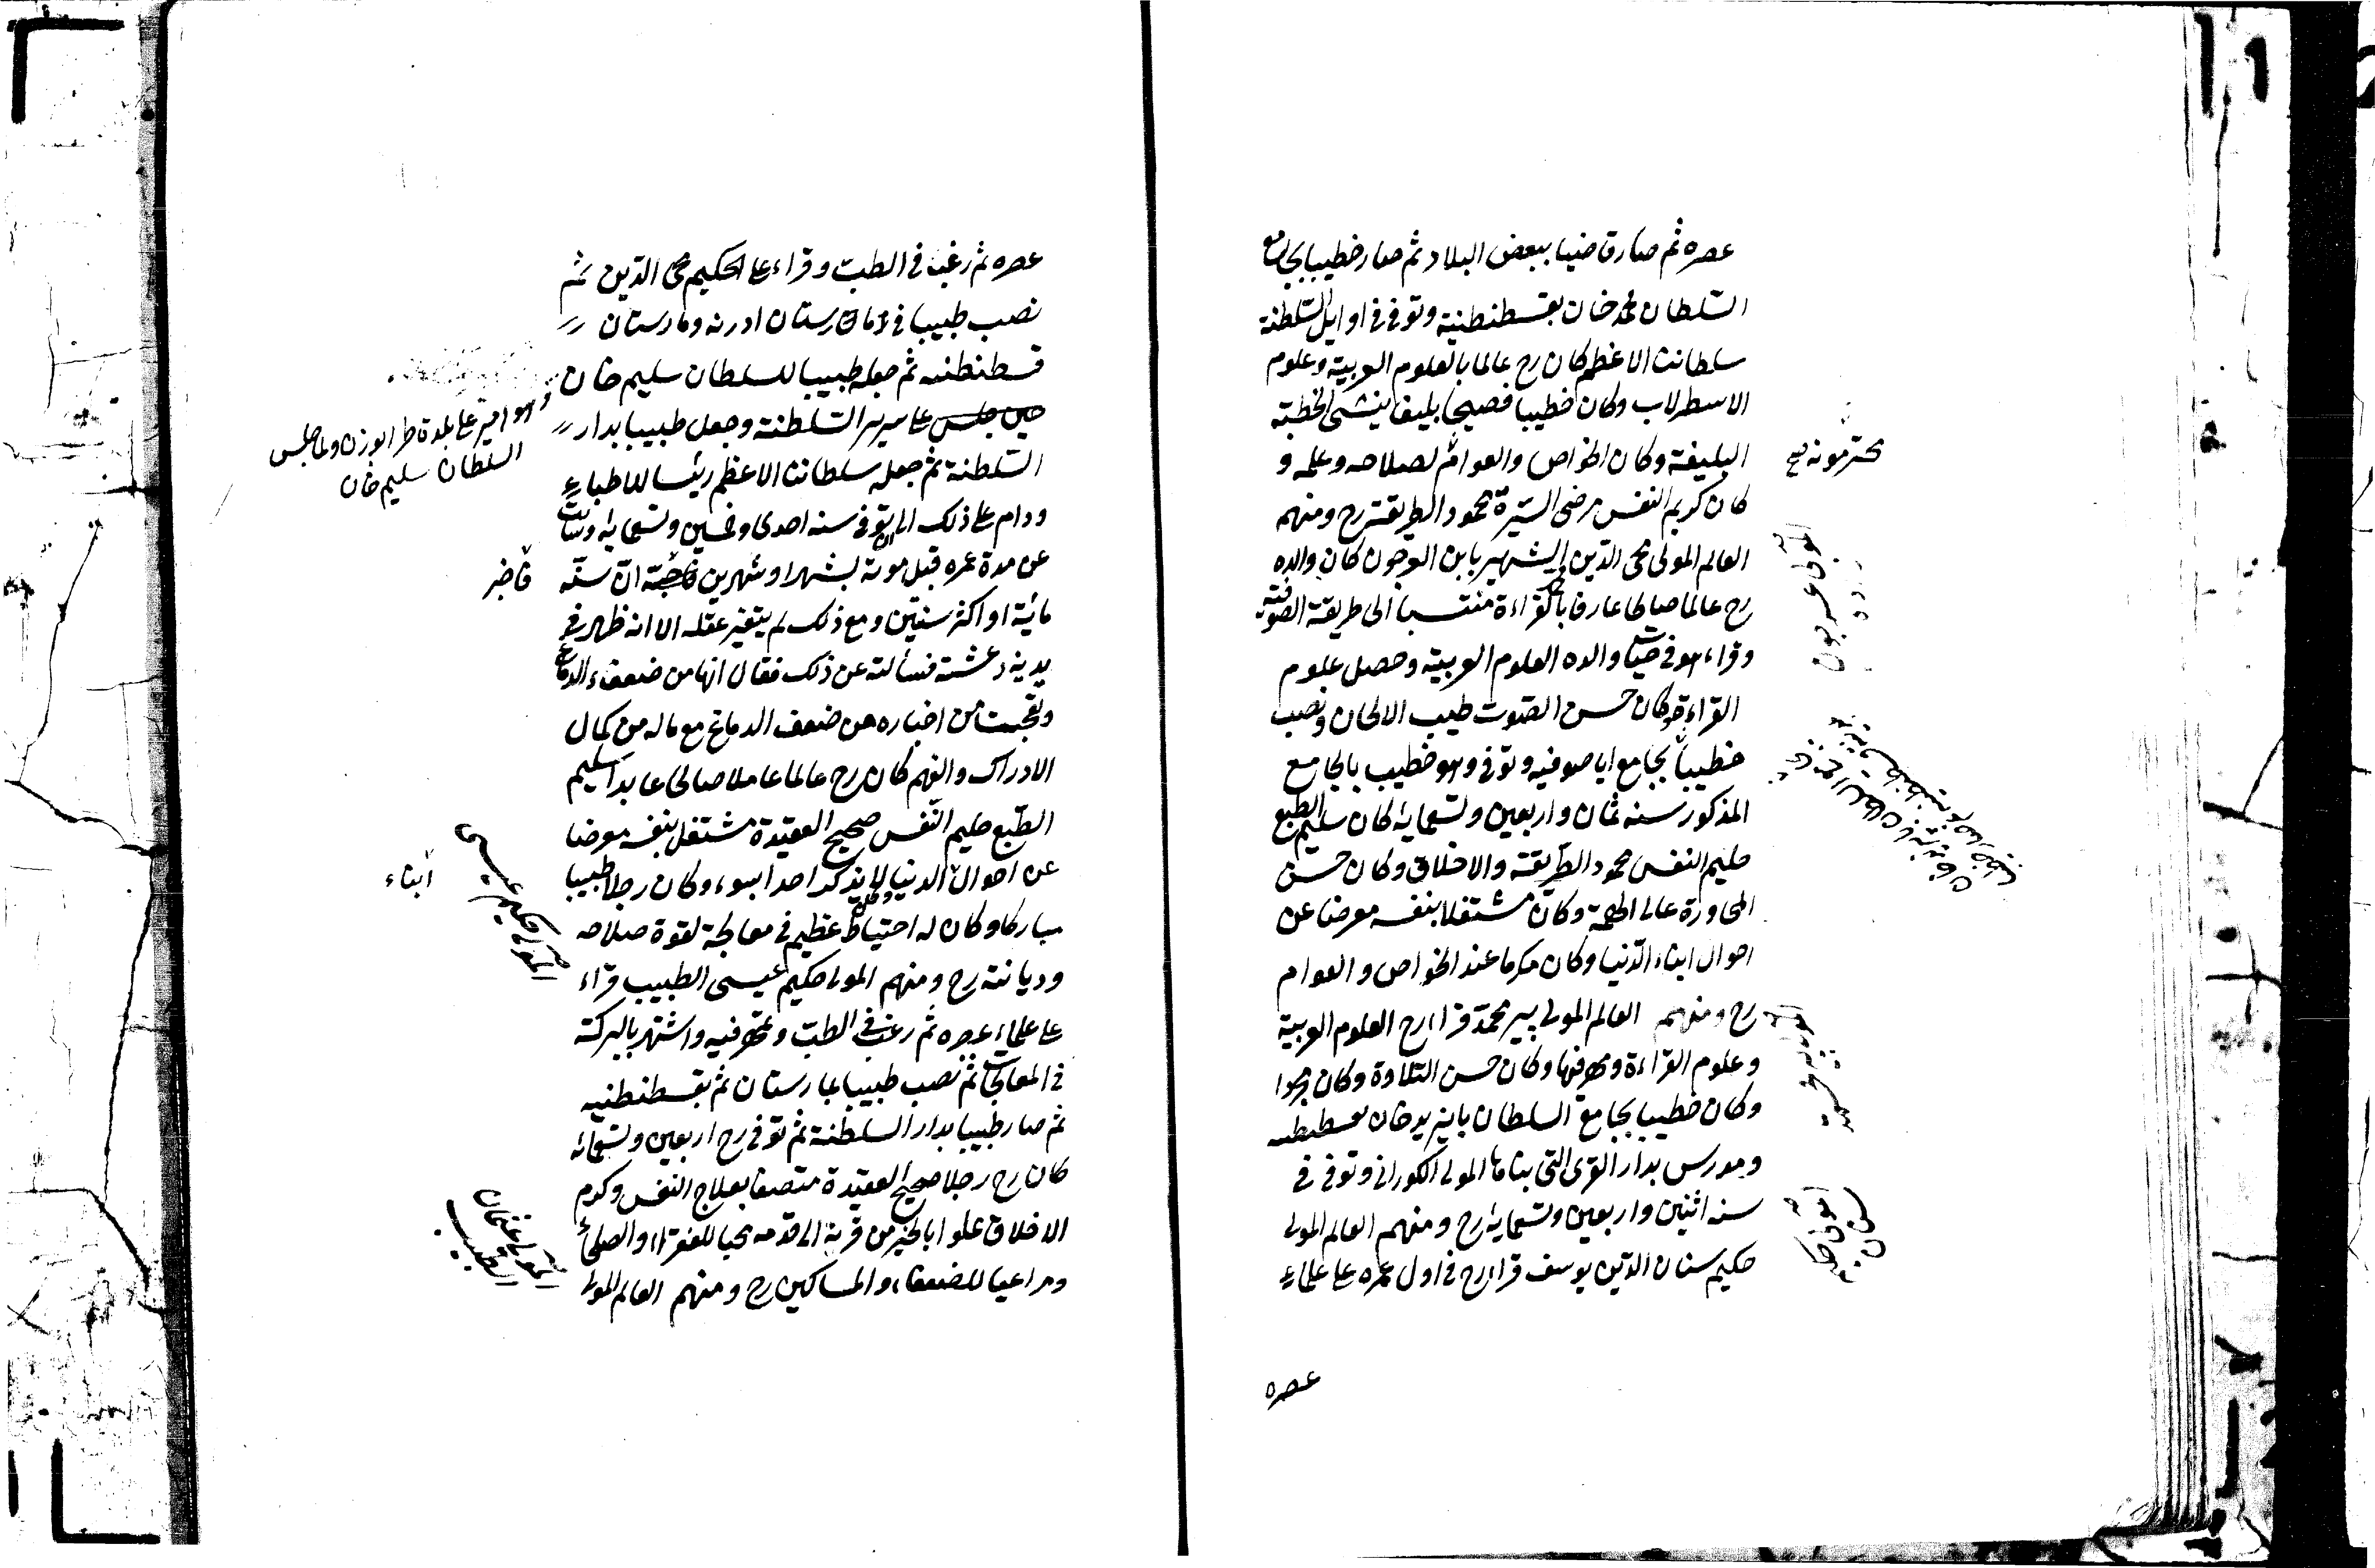 عصره ثم صار قاضيا ببعض البلاد ثم صار خطيبا بجامع
السلطان محمد خان بقسطنطنية وتوفى فى اوايل السلطنة
سلطاننا الاعظم كان رح عالما بالعلوم العربية وعلوم
الاسطرلاب وكان خطيبا فصيحا بليغا ينشئ الخطبة
البليغة وكان الخواص والعوام لصلاحه وعلمه و
يحترمونه صح
كان كريم النفس مرضى السيرة محمود الطريقة رح ومنهم
العالم المولى محى الدين الشهير بابن العرجون كان والده
رح عالما صالحا عارفا بالقراءة منتسبا الى طريقة الصوفية
وقراء هو فى حياة والده العلوم العربية وحصل علوم
القراءة وكان حسن الصوت طيب الالحان ونصب
خطيبا بجامع ايا صوفيه وتوفى وهو خطيب بالجامع
المذكور سنه ثمان واربعين وتسعماية كان سليم الطبع
حليم النفس محمود الطريقة والاخلاق وكان حسن
المحاورة عالى الهمة وكان مشتغلا بنفسه معرضا عن
احوال ابناء الدنيا وكان مكرما عند الخواص والعوام
رح ومنهم العالم المولى بير محمد قراء رح العلوم العربية
وعلوم القراءة ومهر فيها وكان حسن التلاوة وكان مجودا
وكان خطيبا بجامع السلطان بايزيد خان بقسطنطنيه
ومدرس بدار القرى التى بناها المولى الكورانى وتوفى فى
سنه اثنين واربعين وتسعماية رح ومنهم العالم المولى
حكيم سنان الدين يوسف قراء رح فى اول عمره على علماء
المولى بير محمد
المولى حكيم سنان
عصره
عصره ثم رغب فى الطب وقراء على الحكيم محى الدين ثم
نصب طبيبا فى مارستان ادرنه ومارستان
قسطنطنيه ثم جعله طبيبا للسلطان سليم خان
وهو امير على بلدة طرابوزن ولما جلس
السلطان سليم خان
حين جلس على سرير السلطنة وجعل طبيبا بدار
السلطنة ثم جعله سلطاننا الاعظم رئيسا للاطباء
ودام على ذلك الى ان توفى سنه احدى وخمسين وتسعماية وسألت
عن مدة عمره قبل موته بشهر او شهرين فاخبر ان سنه
فاخبر
مائية او اكثر سنتين ومع ذلك لم يتغير عقله الا انه ظهر فى
يديه رعشة فسألته عن ذلك فقال انها من ضعف الدماغ
وتعجبت من اخباره عن ضعف الدماغ مع ماله من كمال
الادراك والفهم كان رح عالما عاملا صالحا عابدا سليم
الطبع حليم النفس صحيح العقيدة مشتغل بنفسه معرضا
عن احوال الدنيا ولا يذكر احدا بسوء وكان رجلا طبيبا
ابناء
مباركا وكان له احتياط عظيم فى معالجة لقوة صلاحه
المولى حكيم عيسى
وديانته رح ومنهم المولى حكيم عيسى الطبيب قراء
على علماء عصره ثم رغب فى الطب ومهر فيه واشتهر بالبركة
فى المعالجات ثم نصب طبيبا بمارستان ثم بقسطنطنيه
ثم صار طبيبا بدار السلطنة ثم توفى رح اربعين وتسعمائه
كان رح رجلا صحيح العقيدة متصفا بصلاح النفس وكرم
الاخلاق مملوا بالخير من قرنه الى قدمه محبا للفقراء والصلحاء
المولى عثمان
الطبيب
ومراعيا للضعفاء والمساكين رح ومنهم العالم المولى